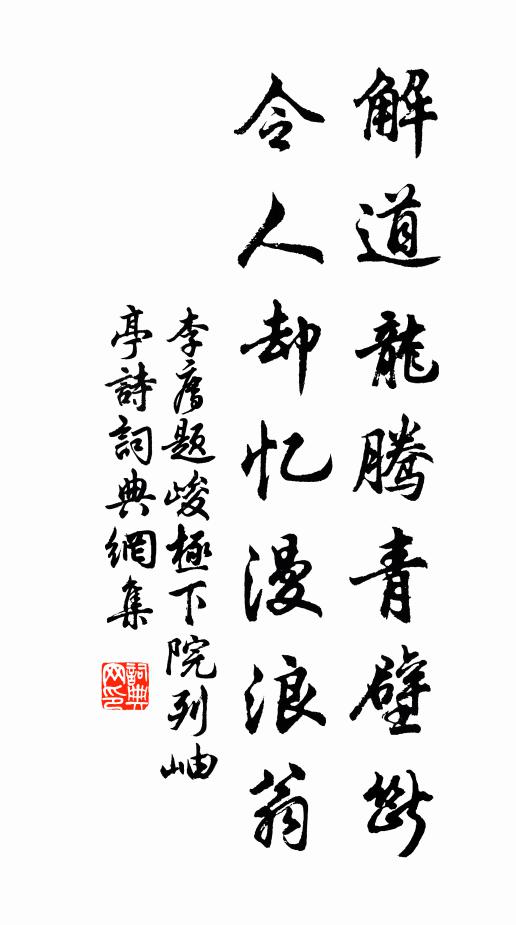 解道龍騰青壁斷
令人却忆漫浪翁
李廌題峻極下院列岫
亭詩詞典網集
詞典网印